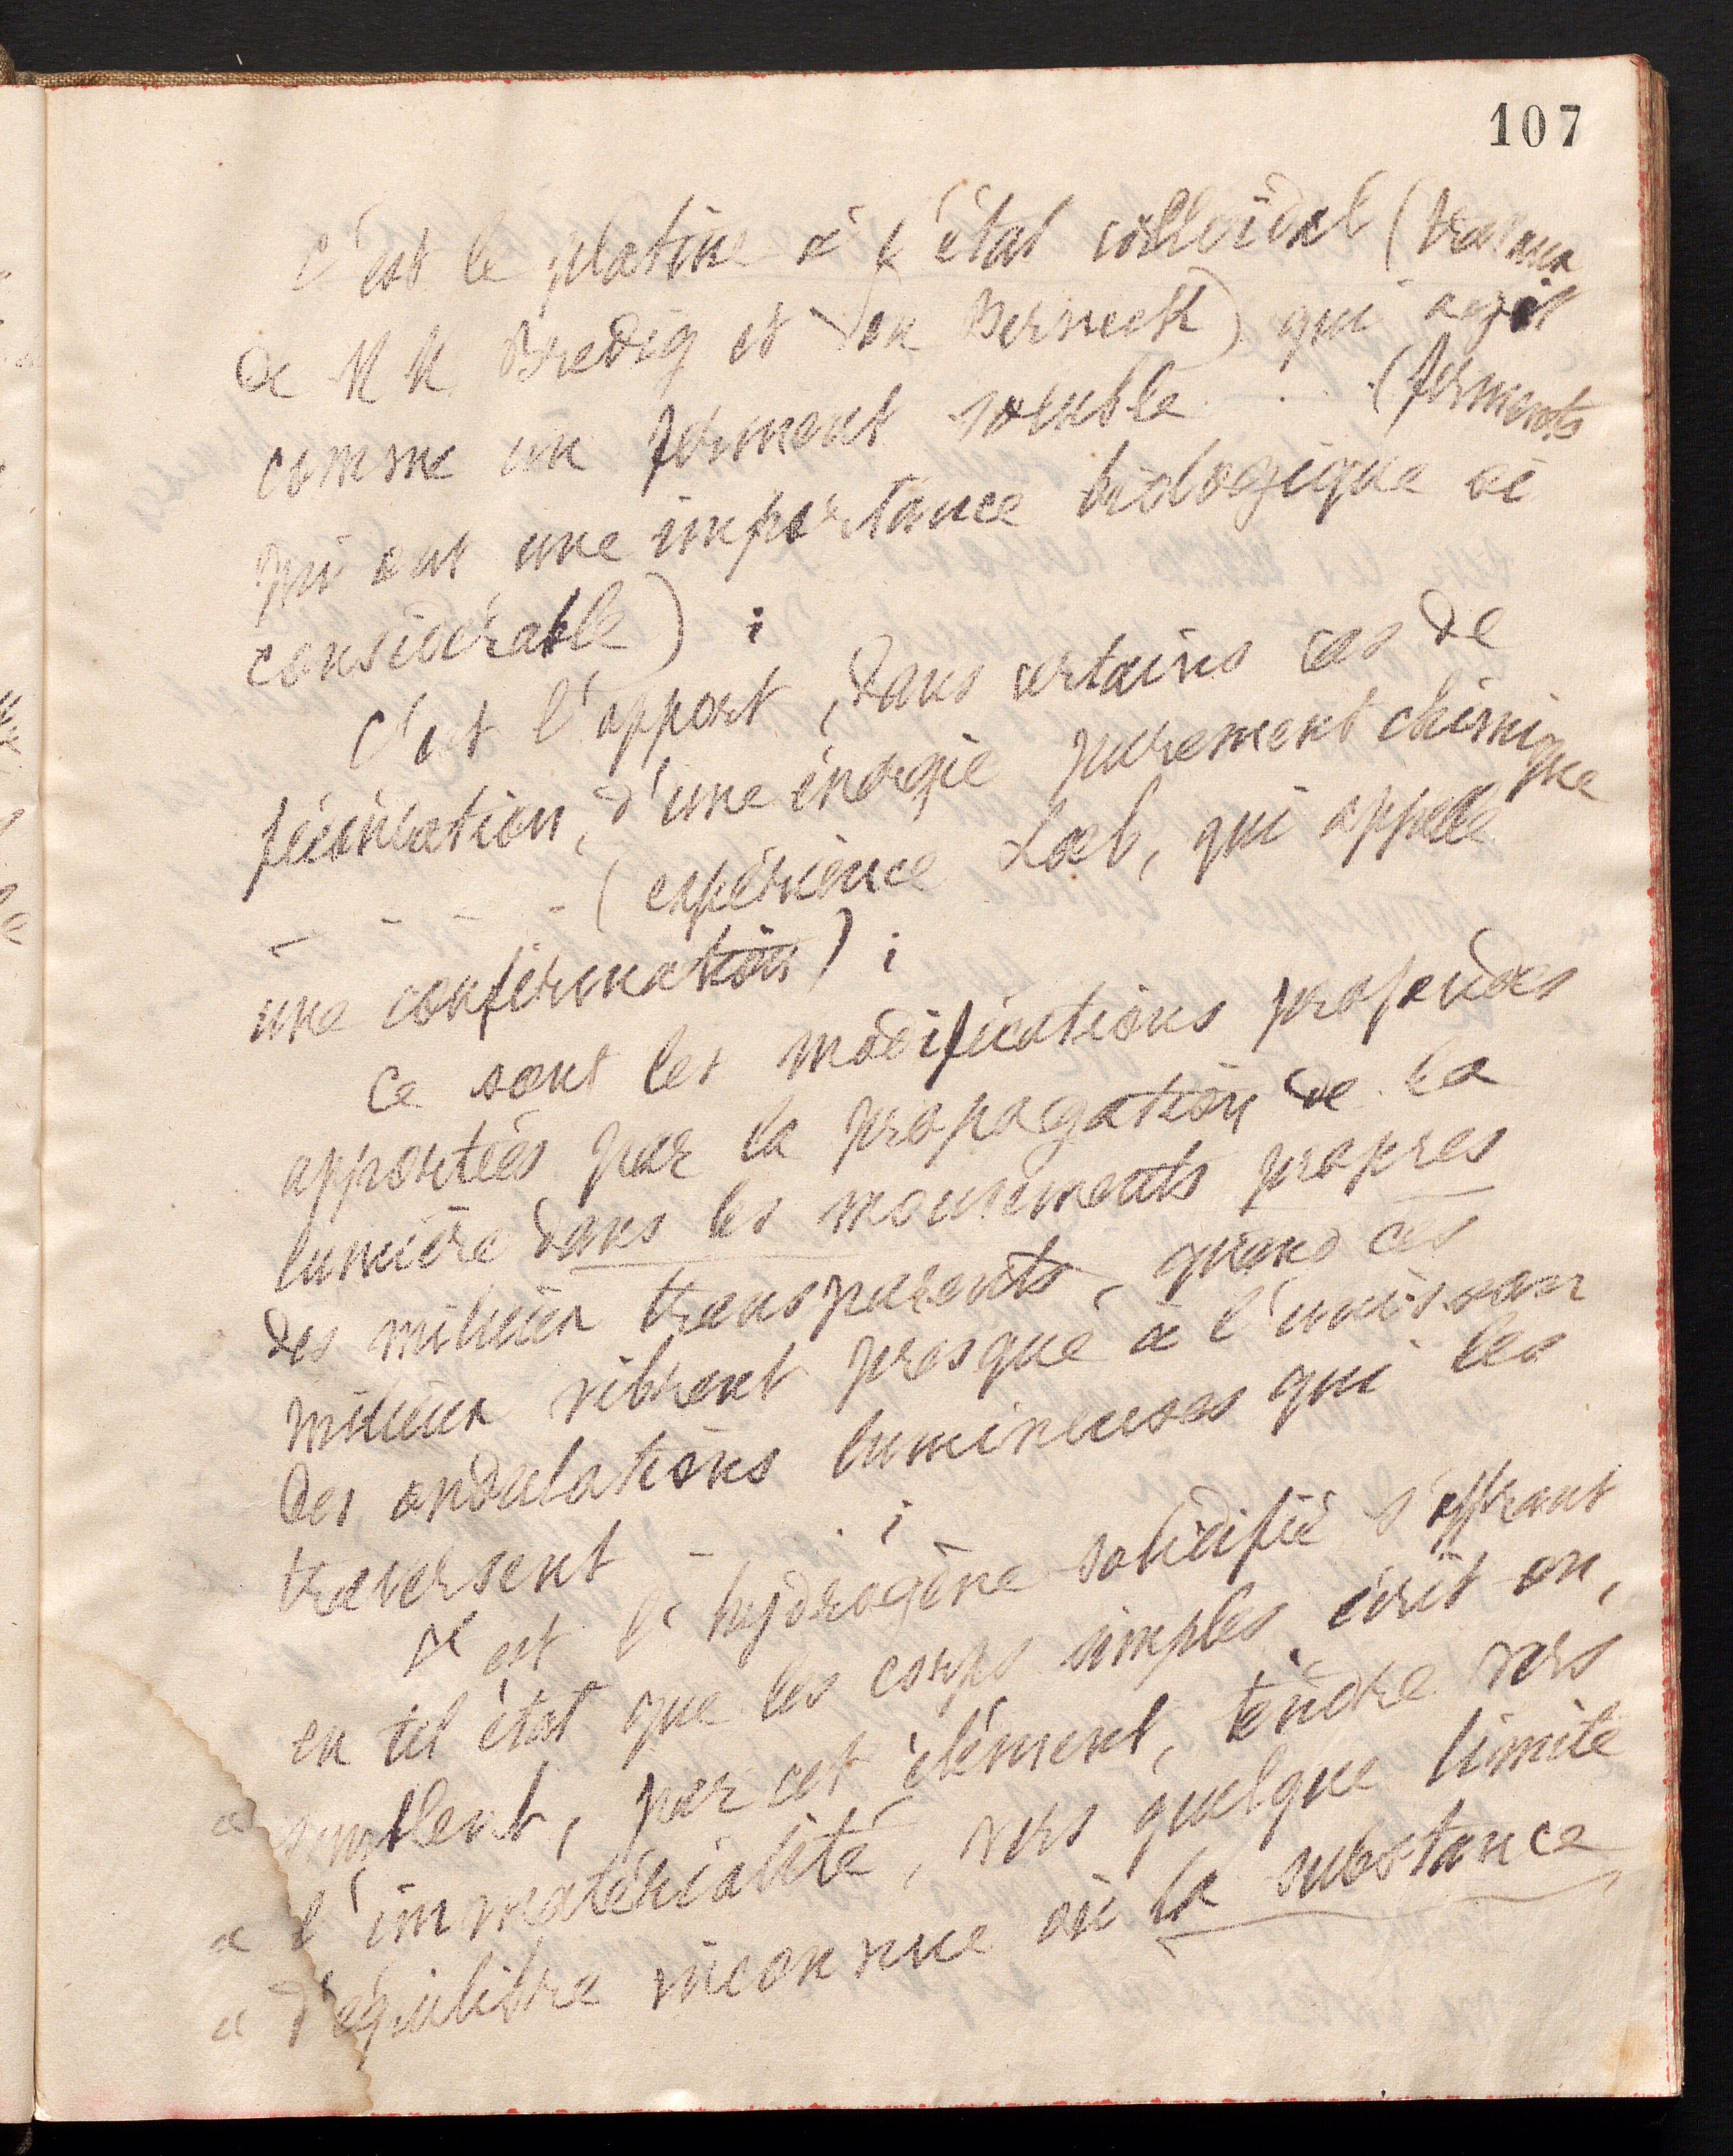 107
C'est le platine à l'état colloïdal (travaux
de MM Bredig et Von Berneck) qui agit
comme un ferment soluble . . (ferments
qui ont une importance biologique si
considérable) ;
C'est l'apport, dans certains cas de
fécondation, d'une énergie purement chimique
- - - - (expérience Loeb, qui appelle
une confirmation) ;
Ce sont les modifications profondes
apportées par la propagation de la
lumière dans les mouvements propres
des milieux transparents, quand ces
milieux vibrent presque à l'unisson
des ondulations lumineuses qui les
traversent - . ;
C'est l'hydrogène solidifié s'offrant
en tel état que les corps simples, écrit on,
« semblent, par cet élément, tendre vers
« l'immatérialité, vers quelque limite
« d'équilibre inconnue où la substance